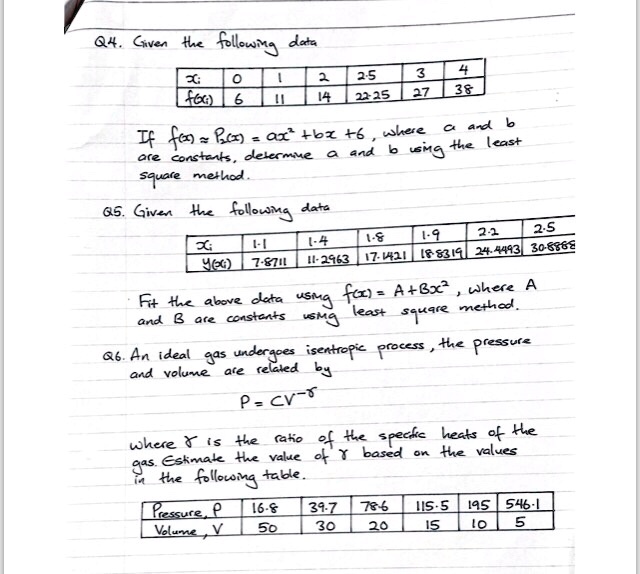 Q4. Given the following data
xi 0 1 2 2.5 3 4
f(xi) 6 11 14 22.25 27 38
If f(x) ≈ P₂(x) = ax² + bx + 6, where a and b
are constants, determine a and b using the least
square method.
Q5. Given the following data
xi 1.1 1.4 1.8 1.9 2.2 2.5
y(xi) 7.8711 11.2963 17.1421 18.8319 24.4493 30.8888
Fit the above data using f(x) = A + Bx², where A
and B are constants using least square method.
Q6. An ideal gas undergoes isentropic process, the pressure
and volume are related by
P = CV^-γ
where γ is the ratio of the specific heats of the
gas. Estimate the value of γ based on the values
in the following table.
Pressure, P 16.8 39.7 78.6 115.5 195 546.1
Volume, V 50 30 20 15 10 5